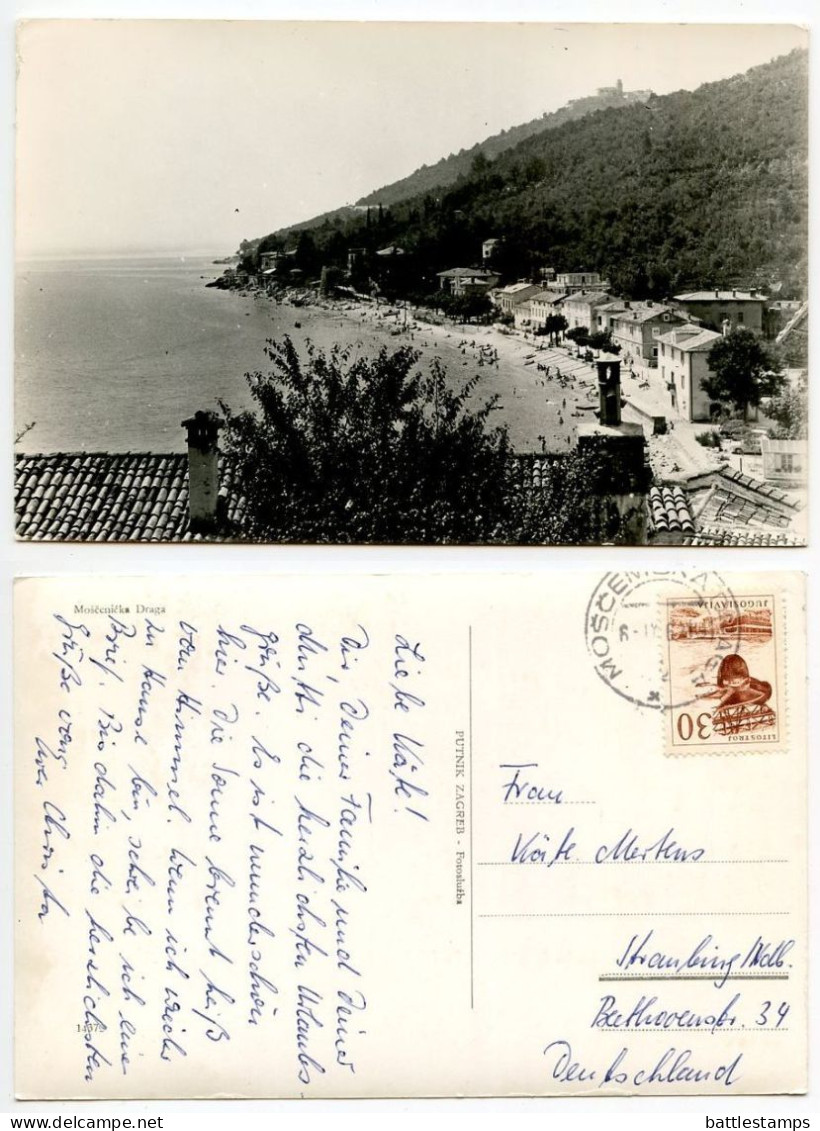 Mošćenička Draga
Liebe Käte!
Dir, Deiner Familie und Deiner
Mutti die herzlichsten Urlaubs
grüße. Es ist wunderschön
hier. Die Sonne brennt heiß
vom Himmel. Wenn ich wieder
zu Hause bin, schreibe ich eine
Brief. Bis dahin die herzlichsten
Grüße von
Christa
14379
PUTNIK ZAGREB - Fotoslužba
MOŠĆENIČKA DRAGA
JUGOSLAVIJA
30
LITOSTROJ
Frau
Käte Mertens
Straubing/Ndb.
Beethovenstr. 34
Deutschland
battlestamps